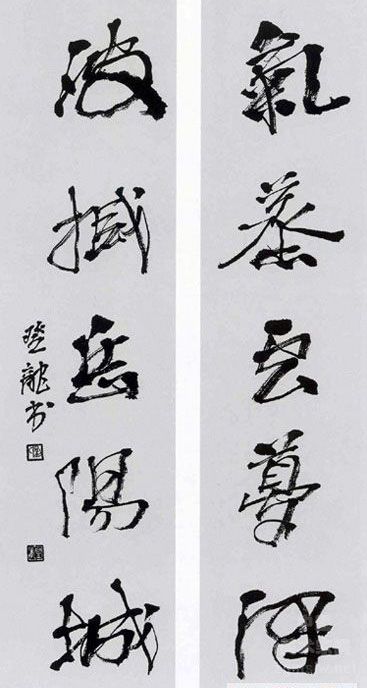 氣蒸云夢澤
波撼岳陽城
登龍书